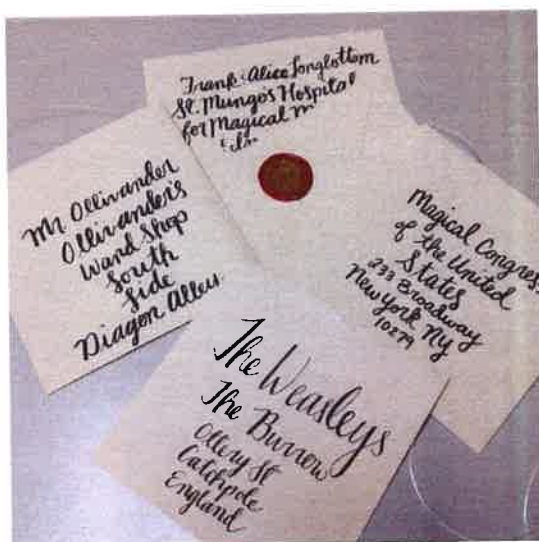 Frank & Alice Longbottom
St. Mungo's Hospital
for Magical
Mr Ollivander
Ollivander's
Wand Shop
South
Side
Diagon Alley
Magical Congress
of the United
States
233 Broadway
New York NY
10279
The Weasleys
The Burrow
Ottery St
Catchpole
England